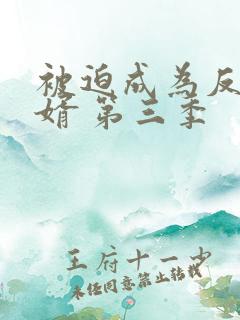 被迫成为反
婿 第三季
王府十一少
未经同意禁止转载